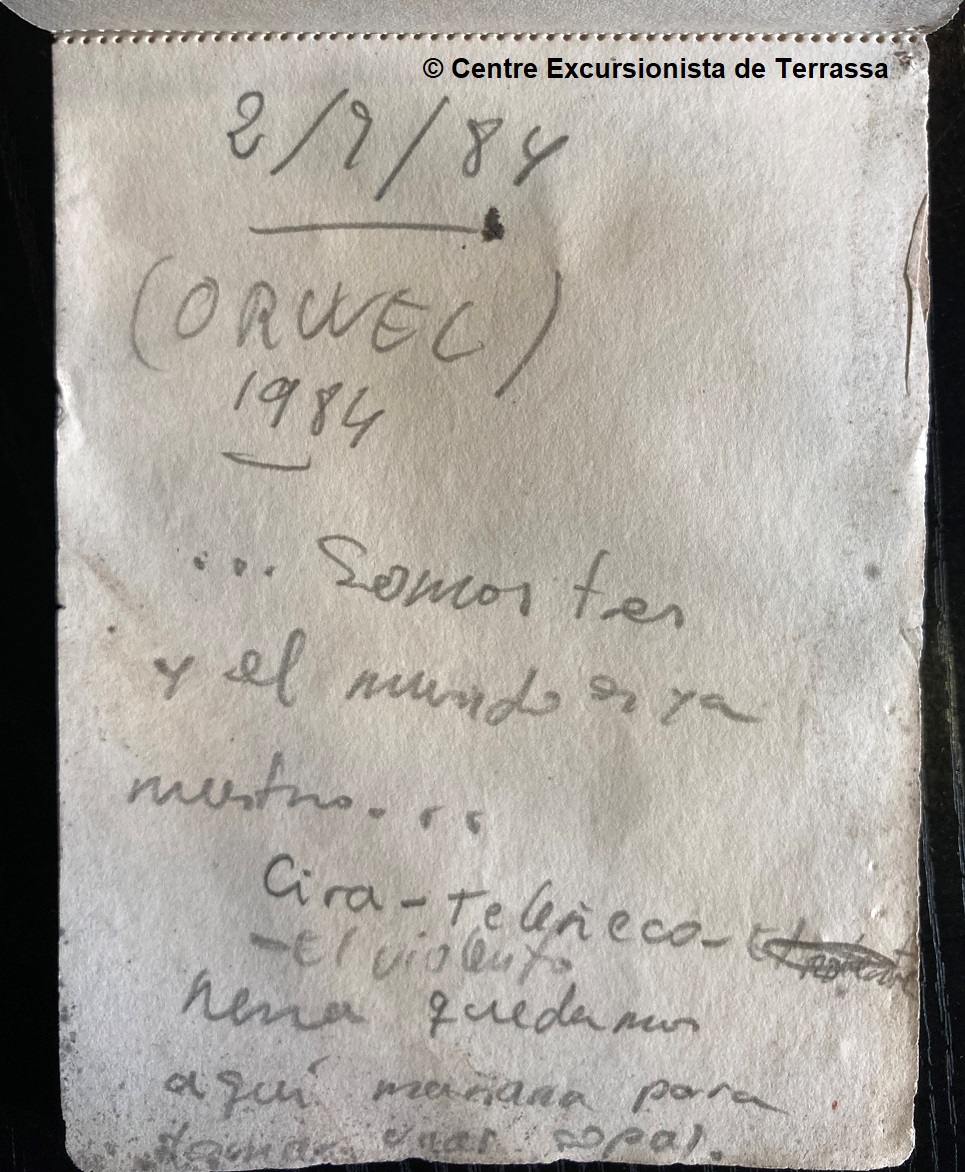 © Centre Excursionista de Terrassa
2/9/84
(ORWEL)
1984
... Somos tres
y el mundo es ya
nuestro...
Cira-Teleñeco-El
-El violento
quedamos
aquí mañana para
tomar unas sopas.